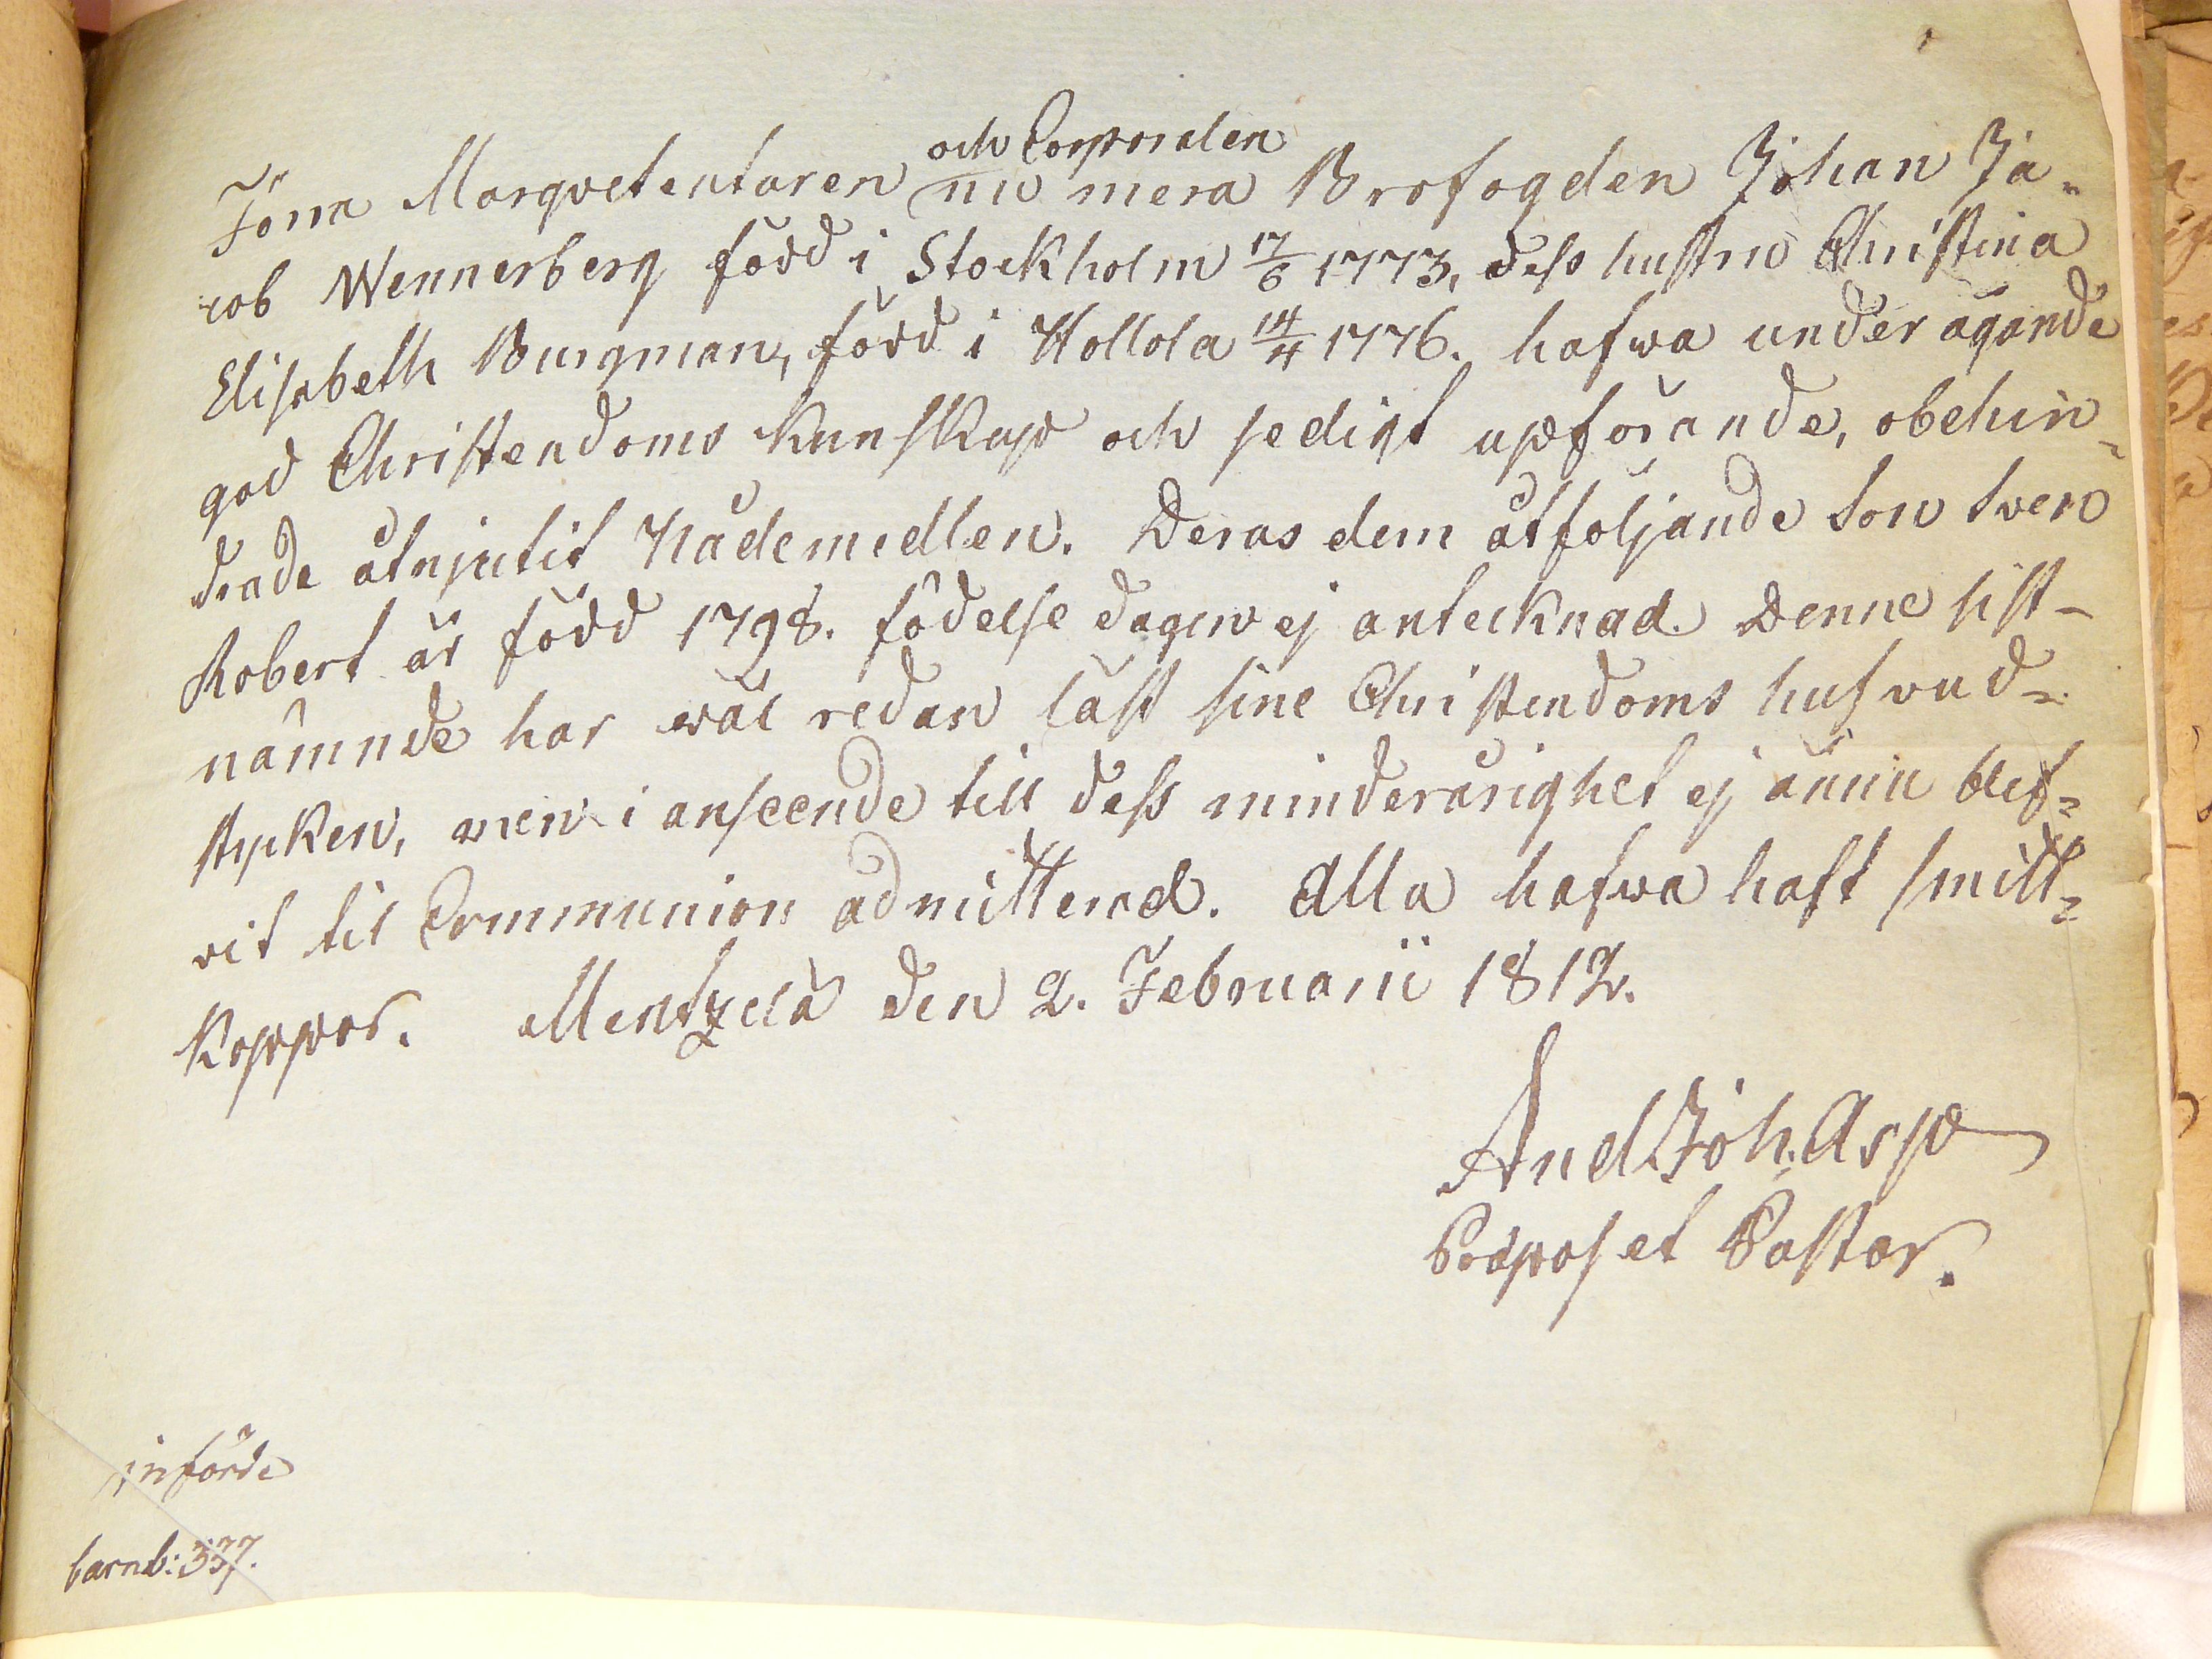 och Corporalen
Förra Marqvetentaren nu mera Brofogden Johan Ja=
cob Wennerberg född i Stockholm 17/6 1773, dess hustru Christina
Elisabeth Burgman, född i Hollola 14/4 1776. hafwa under ägande
god Christendoms kunskap och sedigt upförande, obehin=
drade åtnjutit Nådemedlen. Deras dem åtföljande son Sven
Robert är född 1798. födelse dagen ej antecknad. Denne sist-
nämnde har wäl redan läst sine Christendoms hufvud=
stycken, men i anseende till dess minderårighet ej ännu blif=
vit til Communion admitterad. Alla hafwa haft smitt=
koppor. Mentzelä den 2. Februarii 1812.
And Joh. Asp
Præpos et Pastor.
införde
barnb: 337.